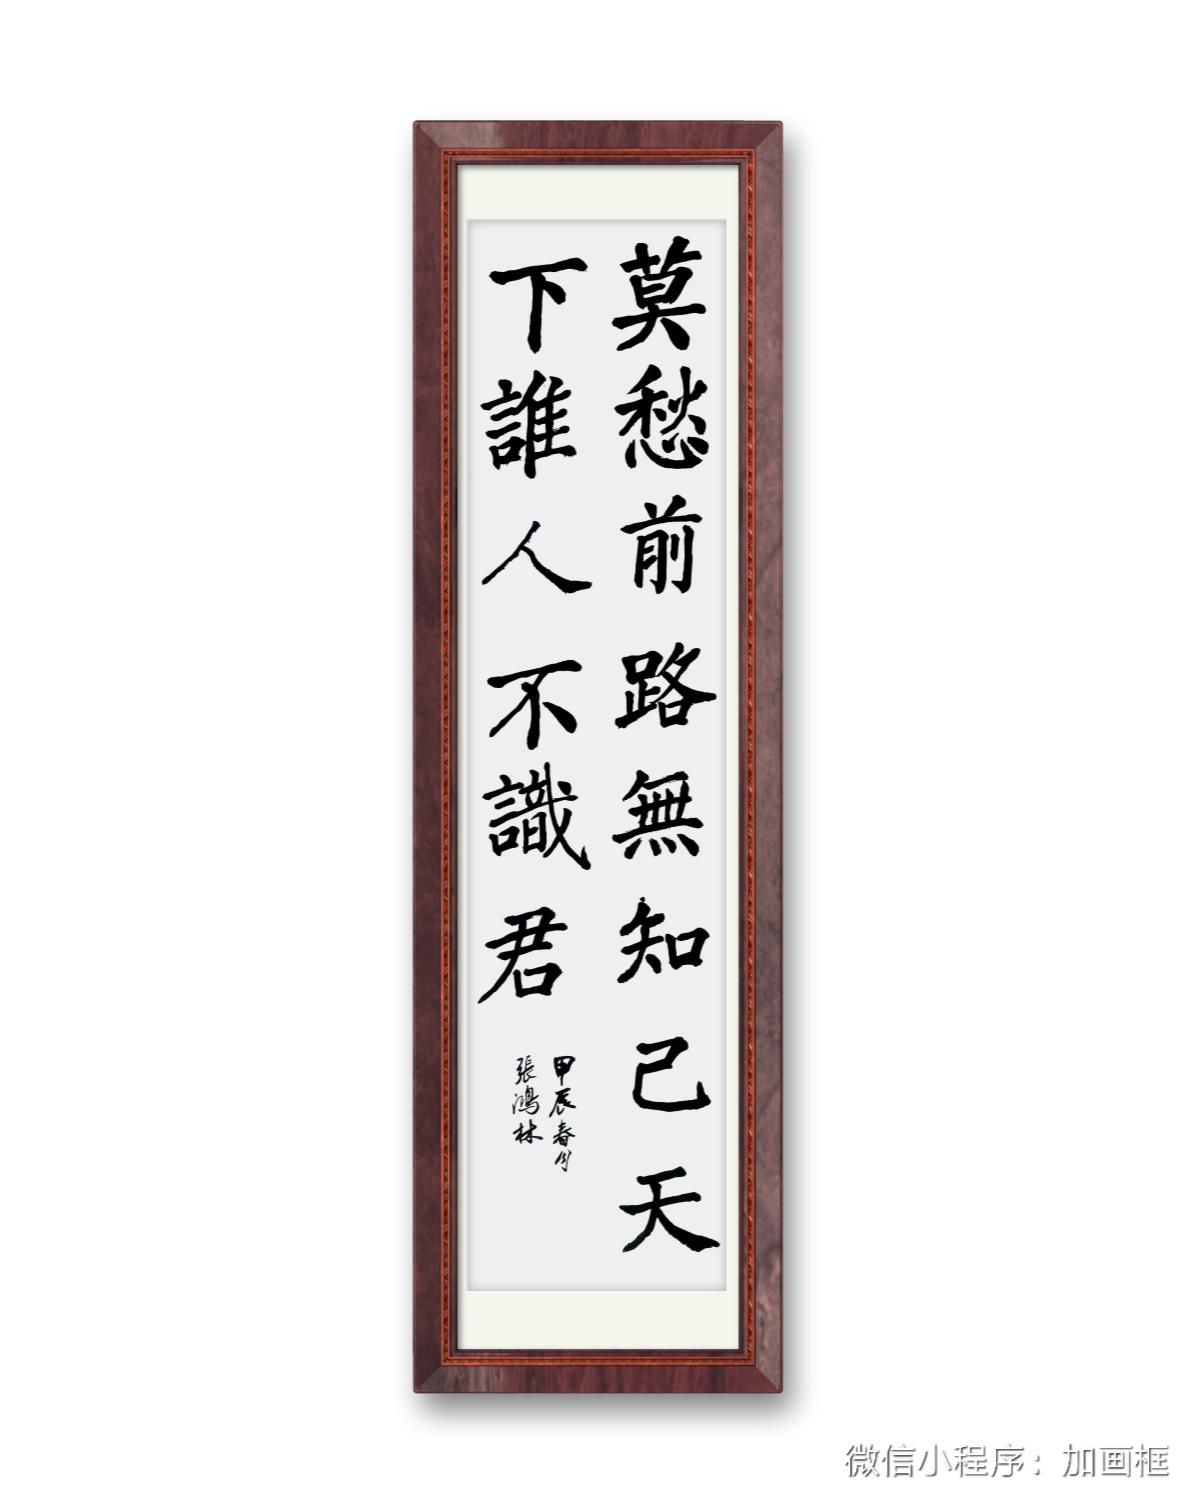 莫愁前路無知己天
下誰人不識君
甲辰春月
張鴻林
微信小程序：加画框